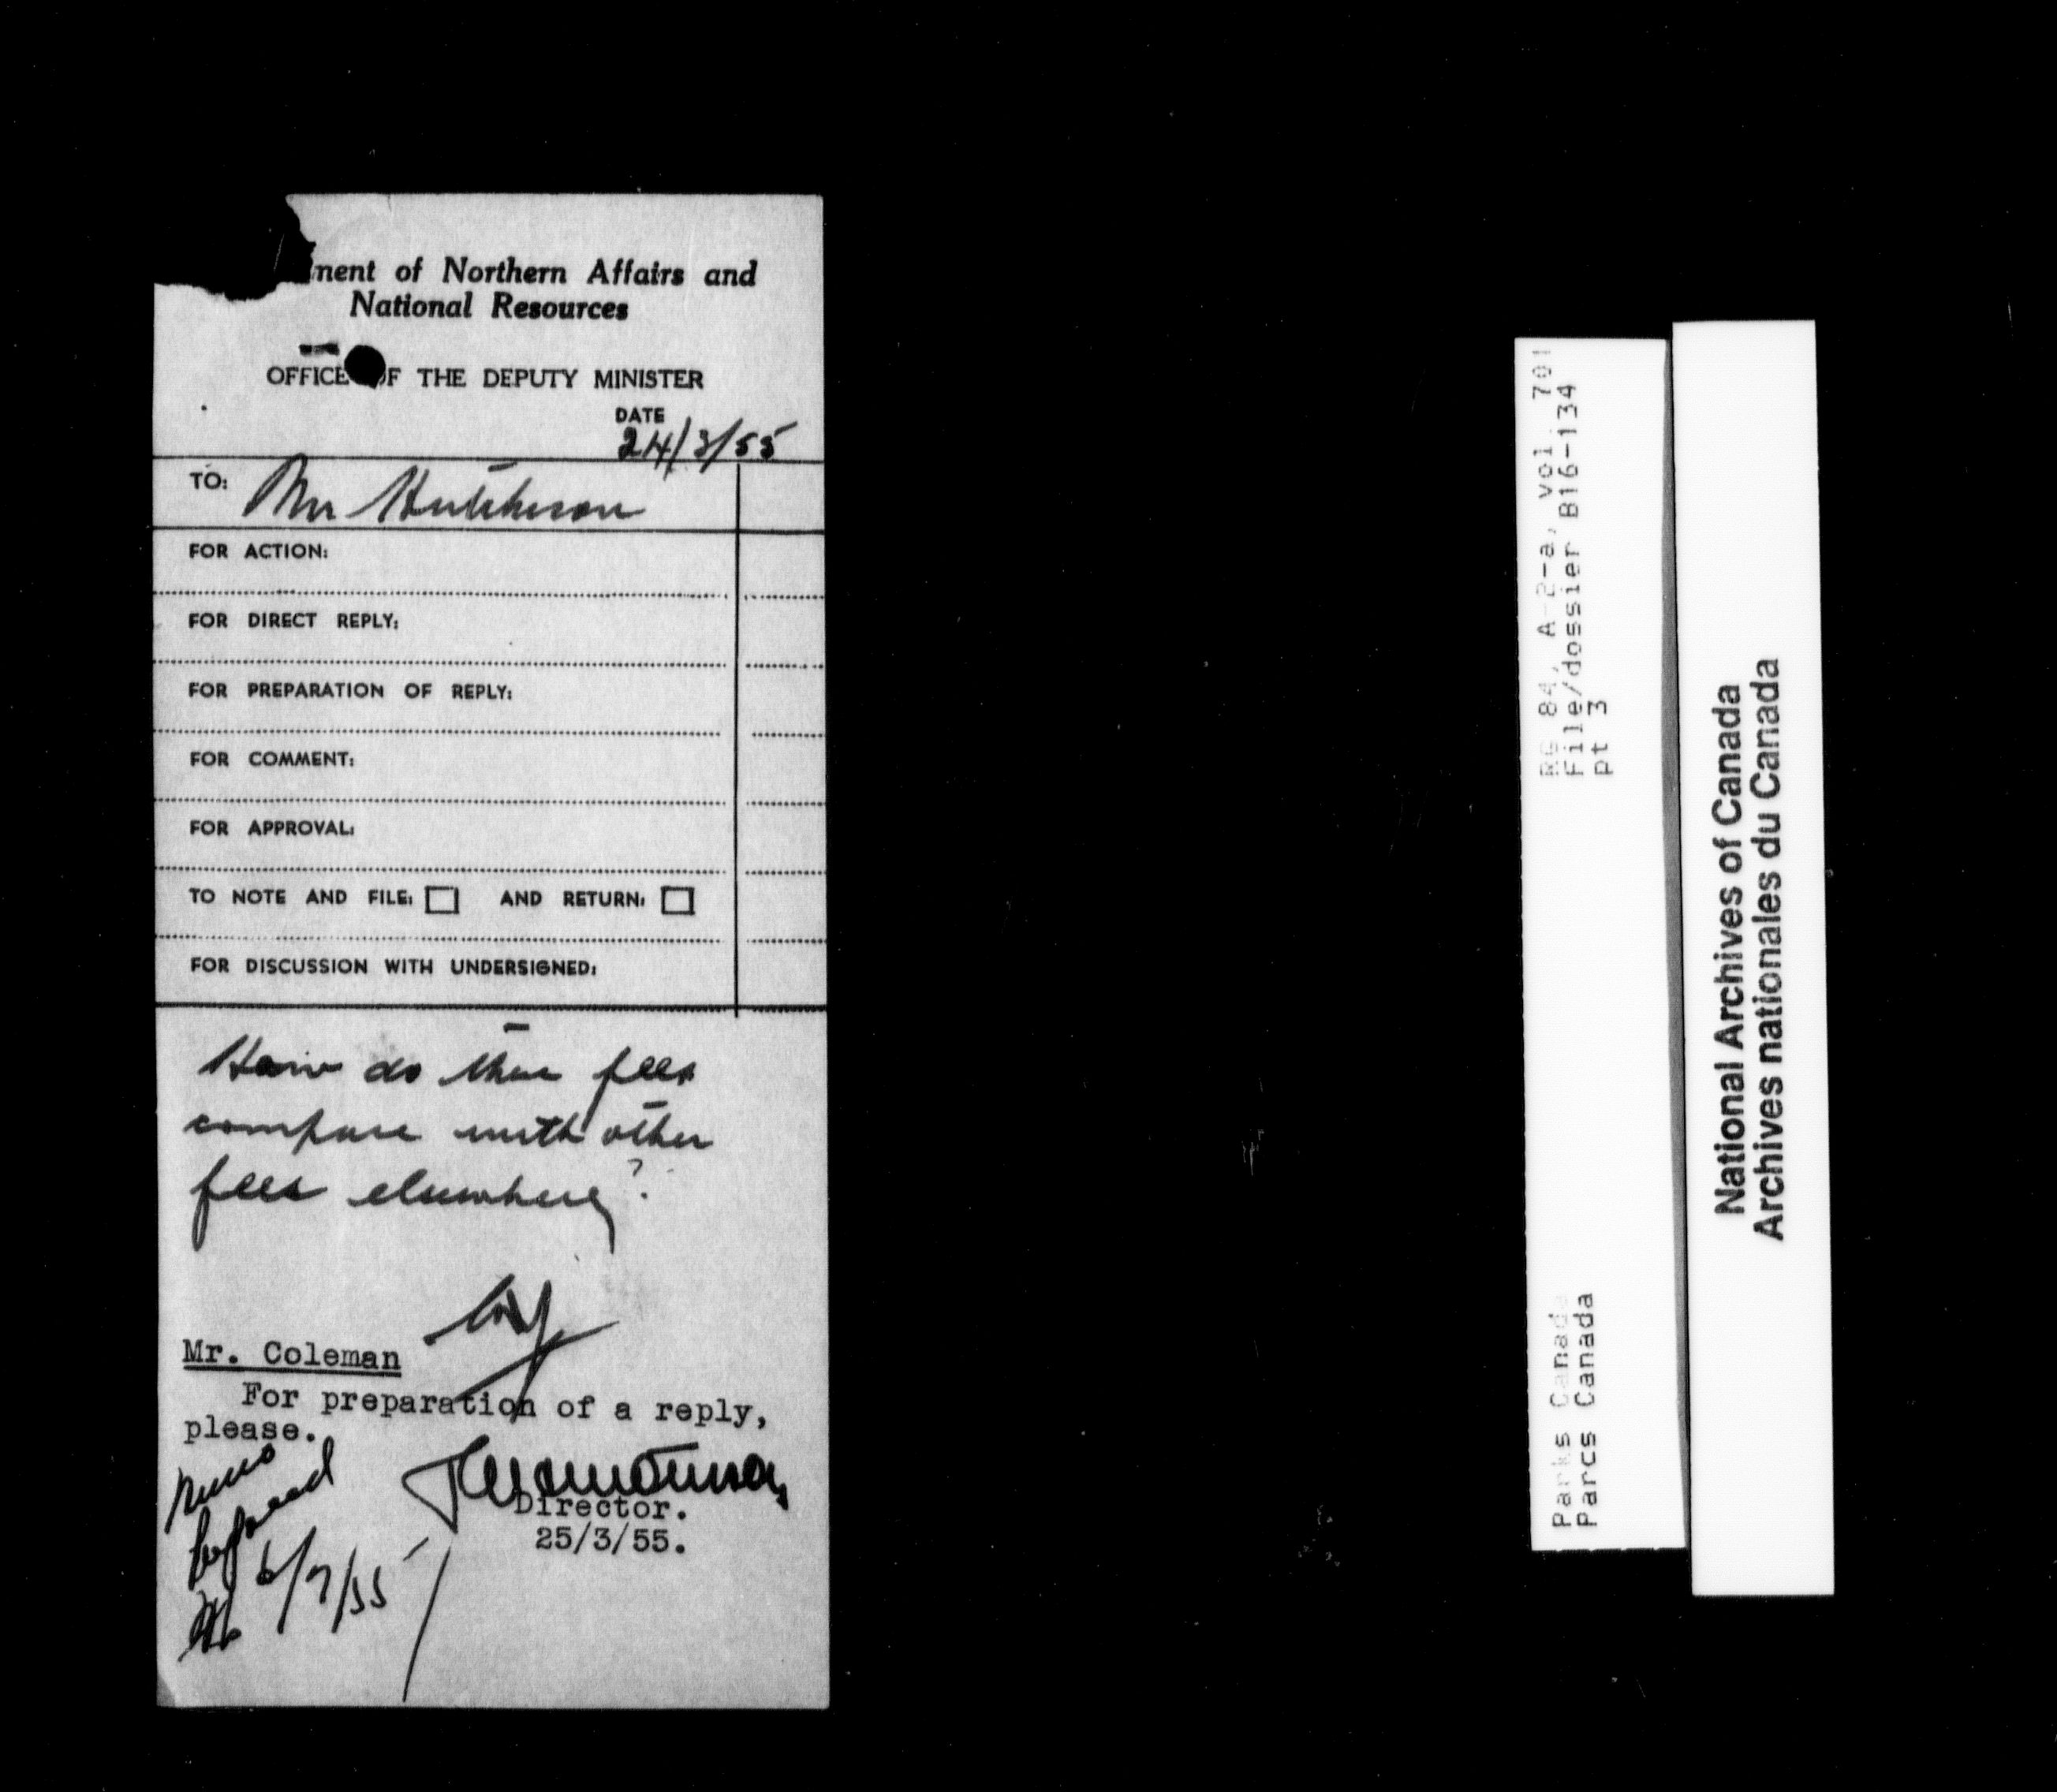 ment of Northern Affairs and
National Resources
OFFICE OF THE DEPUTY MINISTER
DATE
24/3/55
TO: Mr Hutchison
FOR ACTION:
FOR DIRECT REPLY:
FOR PREPARATION OF REPLY:
FOR COMMENT:
FOR APPROVAL:
TO NOTE AND FILE: AND RETURN:
FOR DISCUSSION WITH UNDERSIGNED:
How do these fees
compare with other
fees elsewhere?
Mr. Coleman
For preparation of a reply,
please.
Director.
25/3/55.
6/7/55
RG 84, A-2-a, vol. 701
File/dossier B16-134
pt 3
Parks Canada
Parcs Canada
National Archives of Canada
Archives nationales du Canada